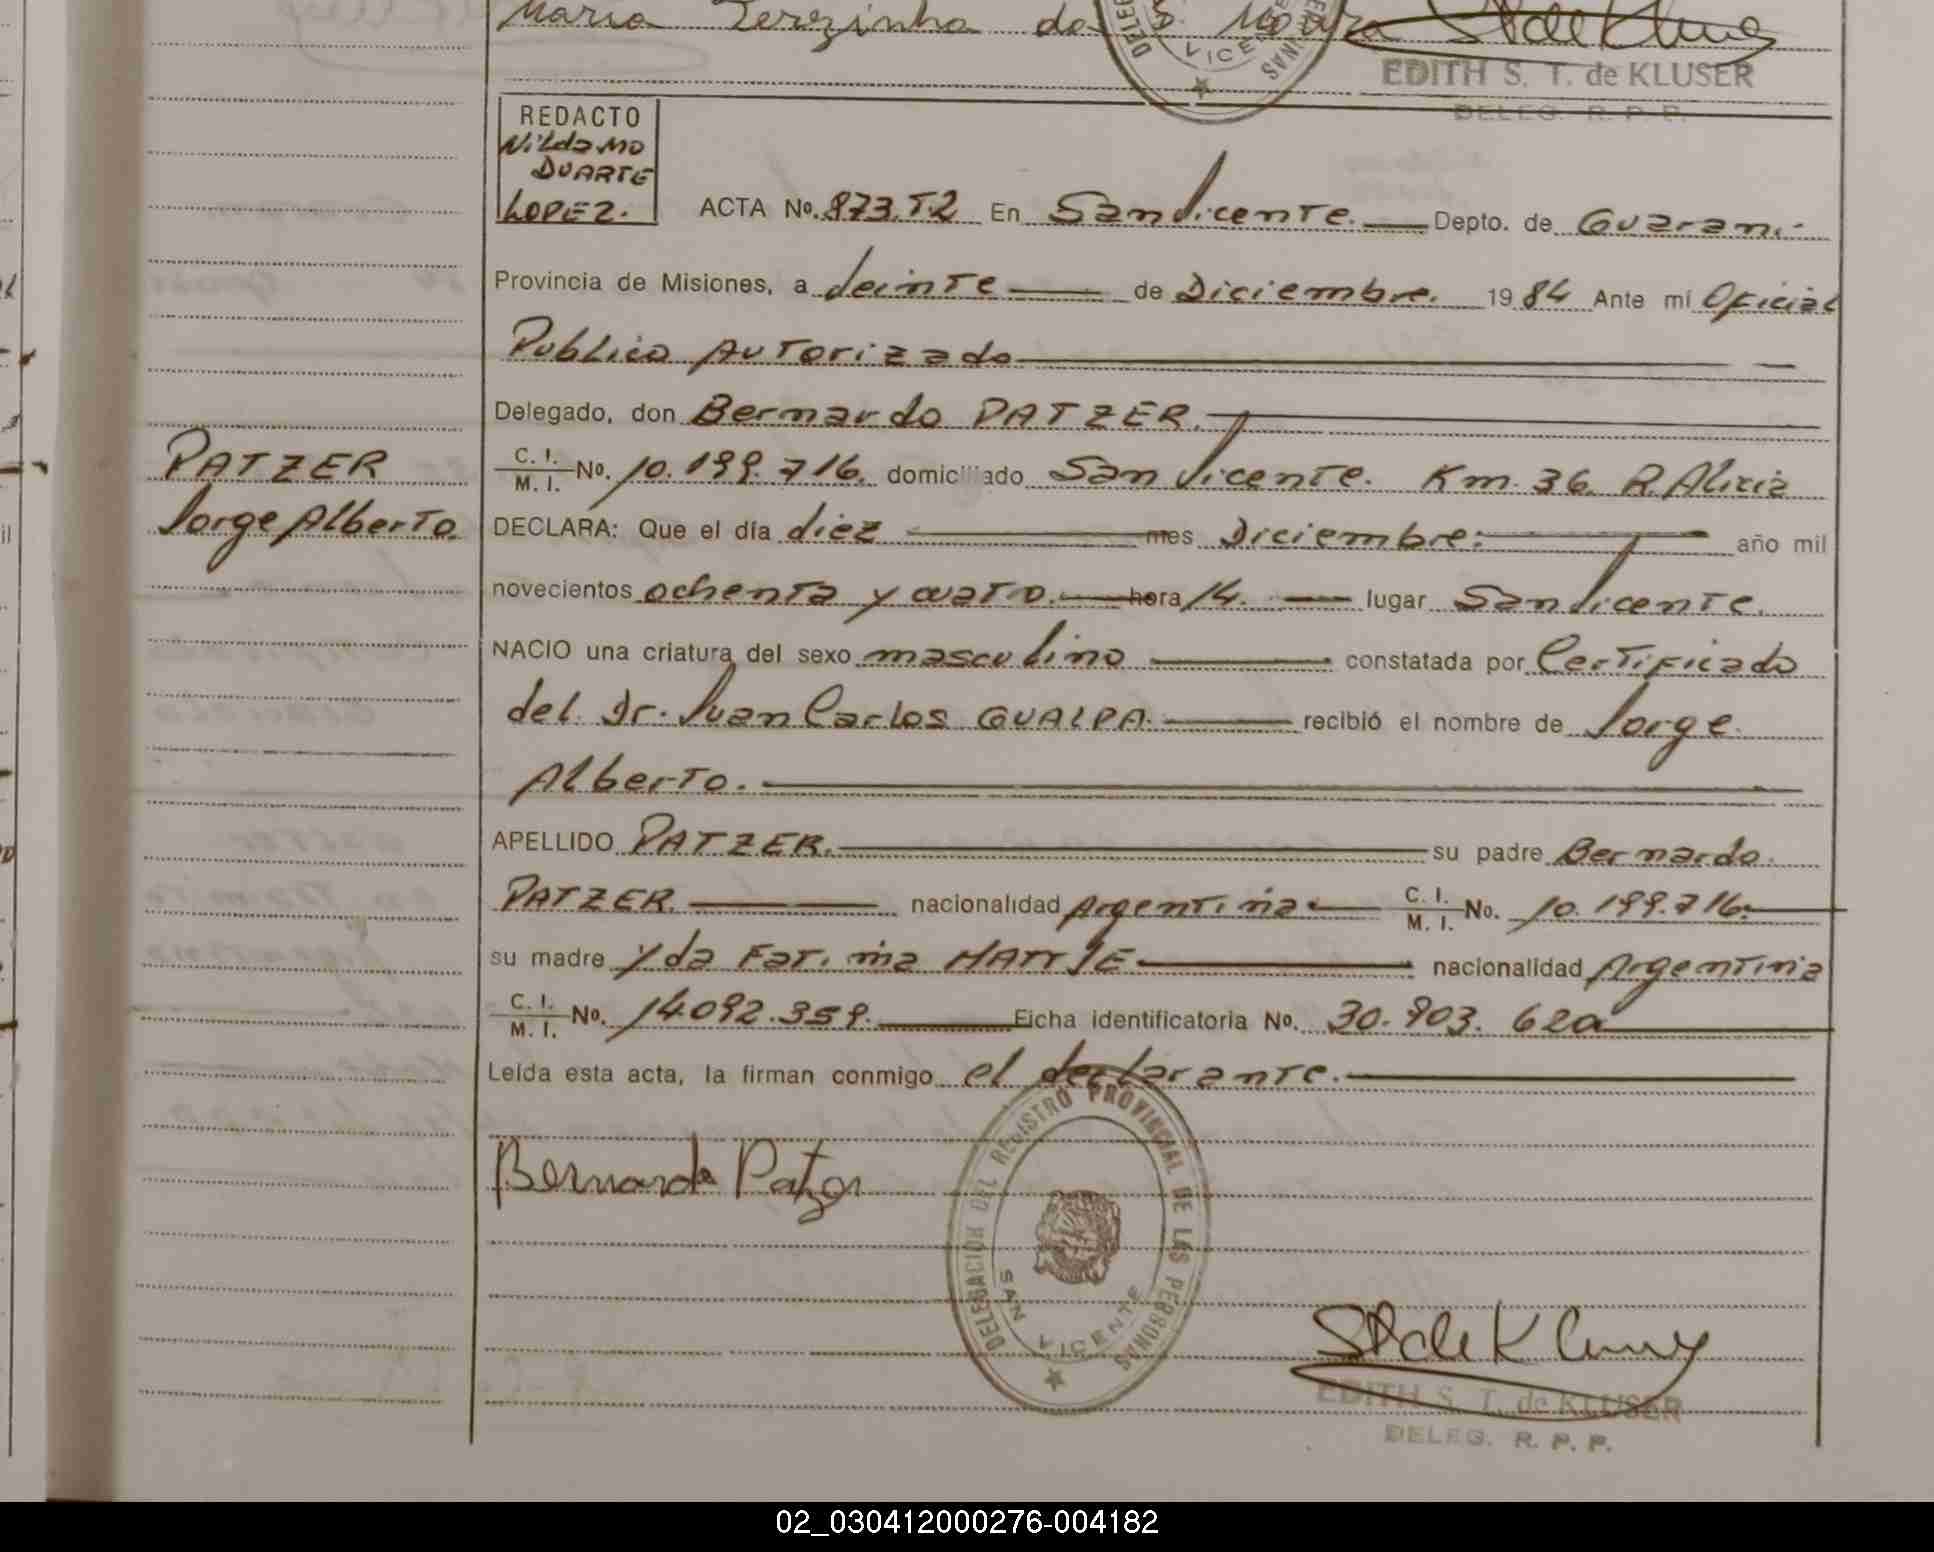 Maria Terezinha da S. Moura
EDITH S. T. de KLUSER
DELEG. R. P. P.
REDACTO
Nildo MO
DUARTE
LOPEZ.
ACTA No. 873.T.2 En San Vicente. Depto. de Guarani.
Provincia de Misiones, a veinte de Diciembre. 1984 Ante mí Oficial
Publico Autorizado
Delegado, don Bernardo PATZER.
C. I. M. I. No. 10.199.716. domiciliado San Vicente. Km. 36. R. Alicia
PATZER
Jorge Alberto.
DECLARA: Que el día diez mes Diciembre: año mil
novecientos ochenta y cuatro. hora 14. lugar San Vicente.
NACIO una criatura del sexo masculino constatada por Certificado
del Dr. Juan Carlos GUALPA. recibió el nombre de Jorge.
Alberto.
APELLIDO PATZER. su padre Bernardo.
PATZER. nacionalidad Argentina. C. I. M. I. No. 10.199.716.
su madre Yda Fatima nacionalidad Argentina
C. I. M. I. No. 14.092.359. Ficha identificatoria No. 30.903.620
Leída esta acta, la firman conmigo el declarante.
Bernardo Patzer
DELEGACION DEL REGISTRO PROVINCIAL DE LAS PERSONAS
SAN VICENTE
EDITH S. T. de KLUSER
DELEG. R. P. P.
02_030412000276-004182